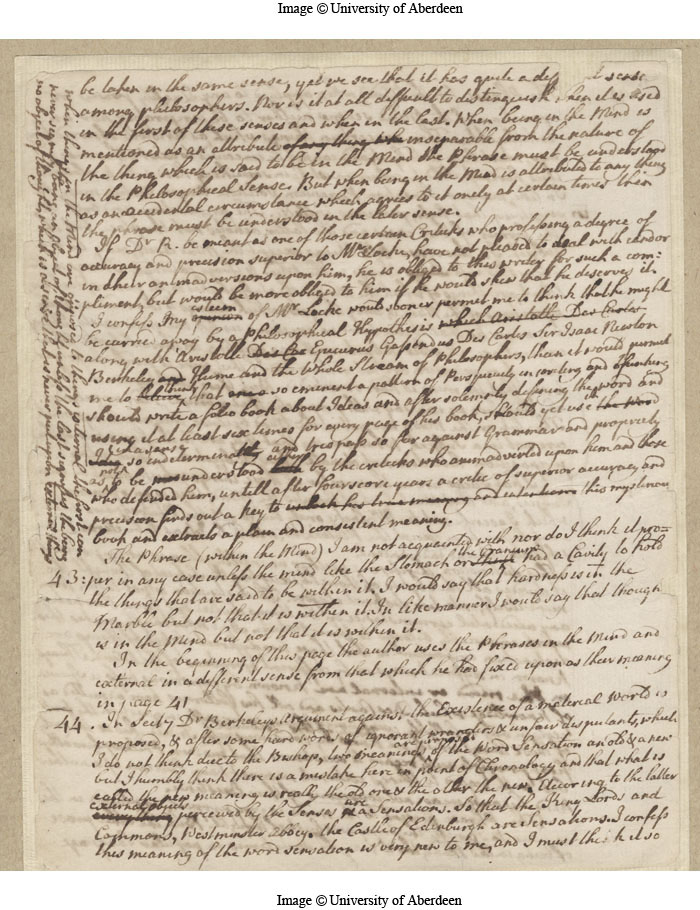 Image © University of Aberdeen
be taken in the same sense, yet we see that it has quite a sense
among philosophers. Nor is it at all difficult to distinguish when it is used
in the first of these senses and when in the last. When being in the Mind is
mentioned as an attribute of any thing inseparable from the nature of
the thing which is said to be in the Mind the Phrase must be understood
in the Philosophical Sense. But when being in the Mind is attributed to any thing
as an accidental circumstance which agrees to it onely at certain times then
the phrase must be understood in the later sense.
If Dr R. be meant as one of those certain Criticks who professing a degree of
accuracy and precision superior to Mr Locke, have not pleased to deal with candor
in their animadversions upon him, he is obliged to this writer for such a com=
pliment, but would be more obliged to him if he would shew that he deserves it.
I confess My esteem of Mr Locke would sooner permit me to think that he might
be carried away by a Philosophical Hypothesis which Aristotle Des Cartes
along with Aristotle Epicurus Gassendus Des Cartes Sir Isaac Newton
Berkeley and Hume and the whole Stream of Philosophers, than it would permit
me to think that so eminent a pattern of Perspicuity in writing and thinking
should write a folio book about Ideas and after solemnly defining the word and
using it at least six times for every page of his book, should yet use the word
in a sense so indeterminate and trespass so far against Grammar and propriety
as to be understood by the criticks who animadverted upon him and those
who defended him, untill after fourscore years a critic of superior accuracy and
precision finds out a key to unlock his true meaning and this mysterious
book and extracts a plain and consistent meaning.
The Phrase (within the Mind) I am not acquainted with nor do I think it pro=
43: per in any case unless the mind like the Stomach or the Cranium had a Cavity to hold
the things that are said to be within it. I would say that hardness is in the
Marble but not that it is within it. In like manner I would say that thought
is in the Mind but not that it is within it.
In the beginning of this page the author uses the Phrases in the Mind and
external in a different sense from that which he had fixed upon as their meaning
in page 41
44. In Sect 7 Dr Berkeleys argument against the Existence of a material World is
proposed, & after some hard words of ignorant wranglers & unfair disputants, which
I do not think due to the Bishop, two meanings are proposed of the Word Sensation an old & a new
but I humbly think there is a mistake here in point of Chronology and that what is
called the new meaning is really the old one & the other the new. According to the latter
external objects every thing perceived by the Senses are Sensations. So that the King Lords and
Commons, Westminster Abbey, the Castle of Edinburgh are Sensations. I confess
this meaning of the word sensation is very new to me, and I must think it so
when therefore the Mind are opposed to things external the first
no object of thought
Image © University of Aberdeen